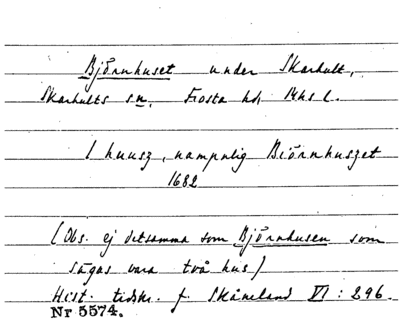 Björnhuset under Skarhult,
Skarhults sn, Frosta hd, Mhs l.
1 huusz, nampnlig Biörnhuszet
1682
(Obs. ej detsamma som Björnhusen som
sägas vara två hus)
Hist. tidskr. f. Skåneland VI : 296.
Nr 5574.